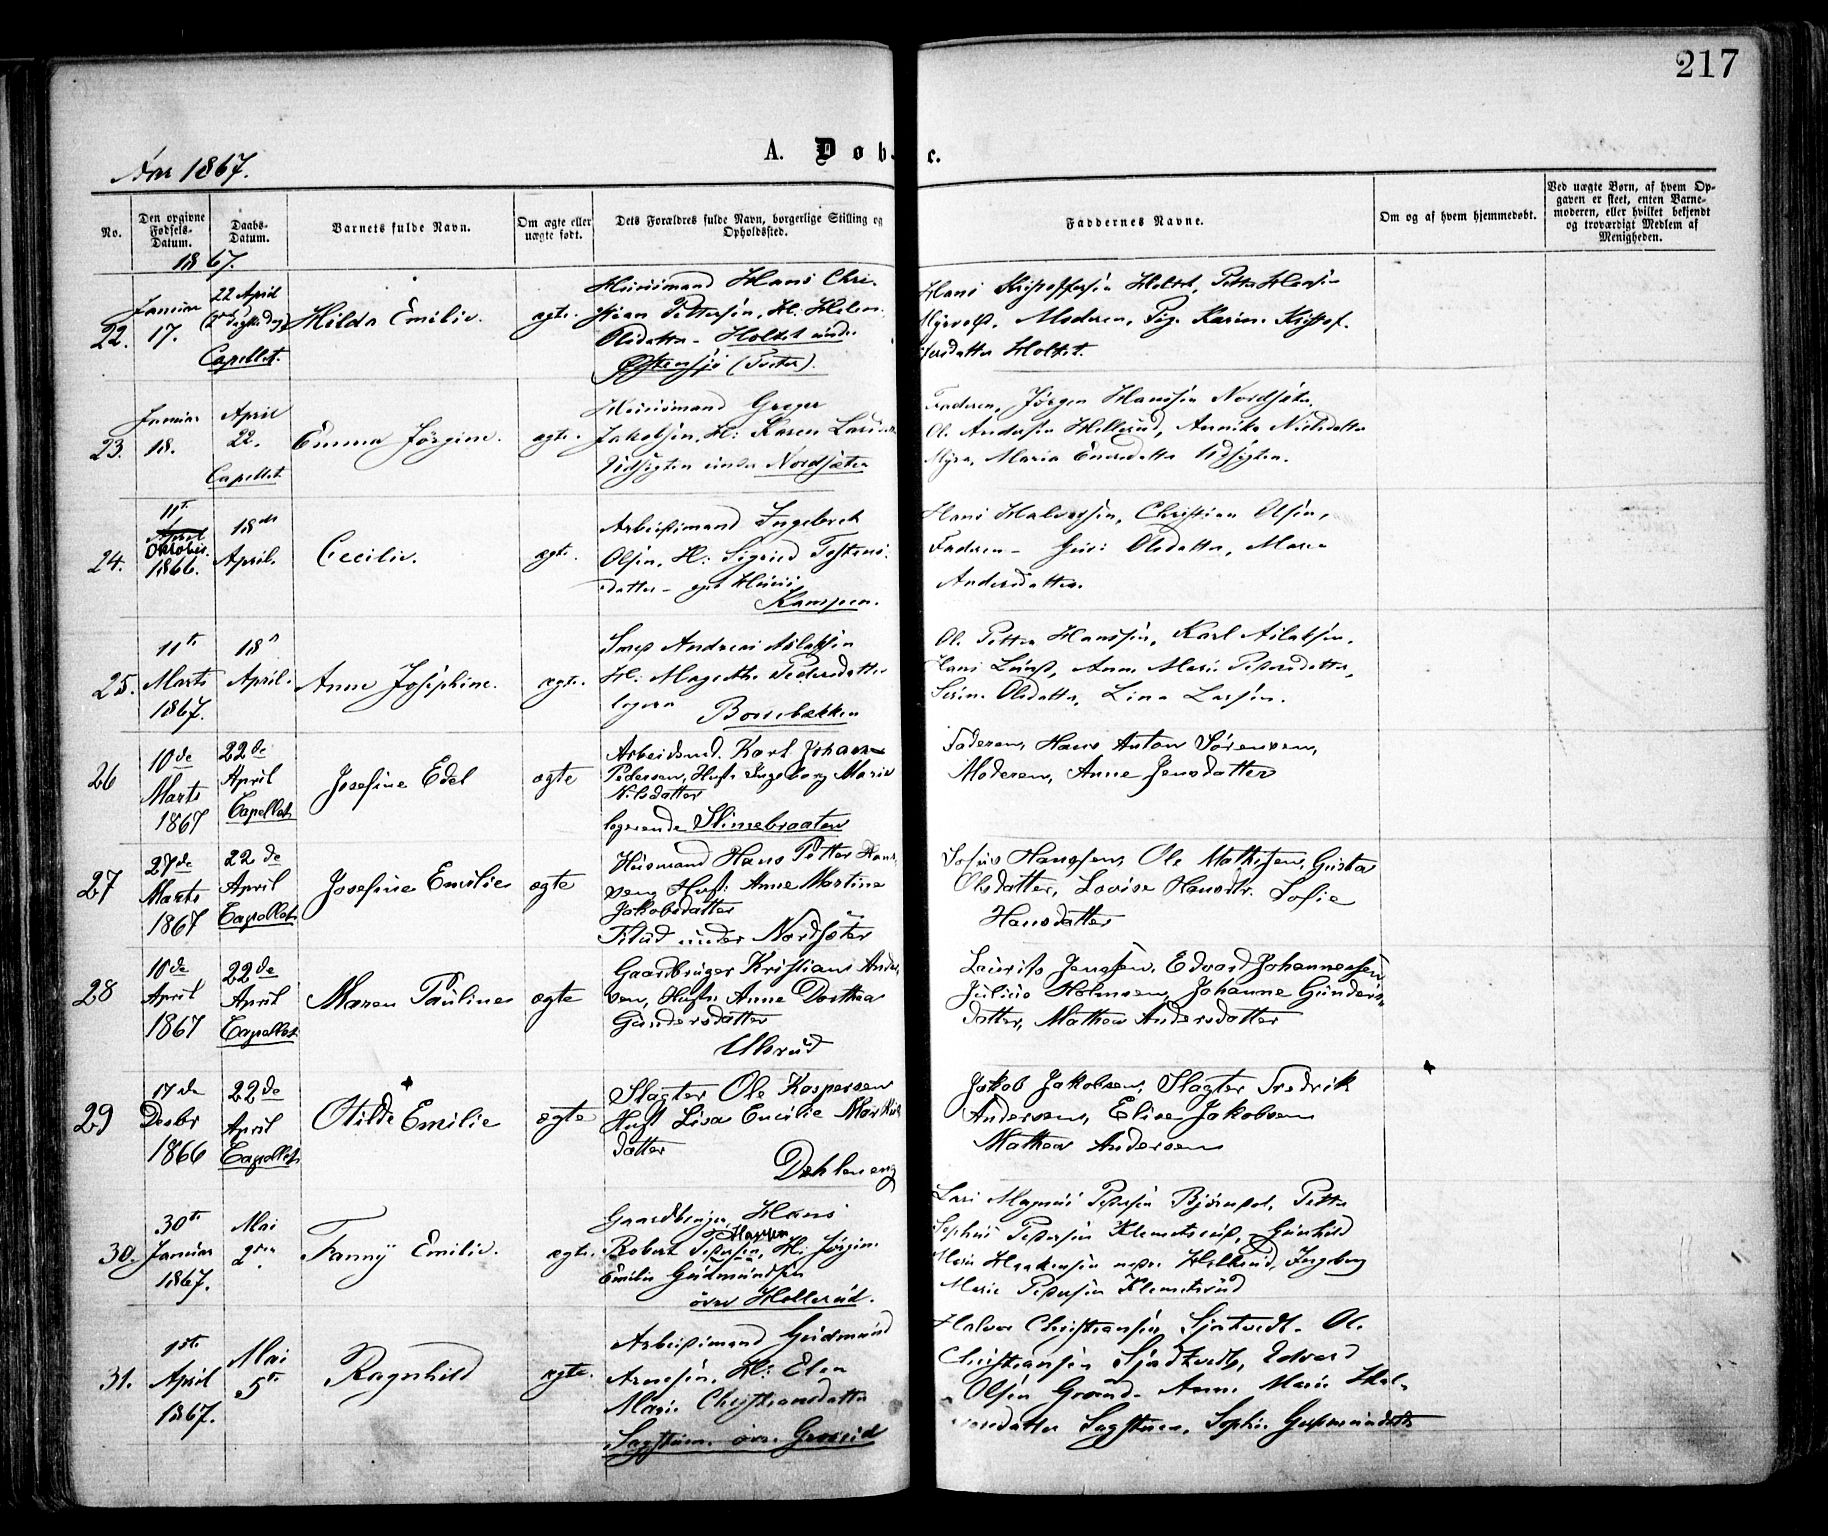 217
A. Døb
e.
Aar 1867.
No.
Den opgivne Fødsels-Datum.
Daabs-Datum.
Barnets fulde Navn.
Om ægte eller uægte født.
Dets Forældres fulde Navn, borgerlige Stilling og Opholdssted.
Faddernes Navne.
Om og af hvem hjemmedøbt.
Ved uægte Børn, af hvem Opgaven er skeet, enten Barnemoderen, eller hvilket bekjendt og troværdigt Medlem af Menigheden.
1867.
22.
Januar
17.
22 April
Capellet.
Hilda Emilie.
ægte.
Huusmand Hans Chri-
stian Pettersen, H: Helene
Olsdatter - Holtet under
Østensjø
Hans Kristoffersen Holtet, Petter Hansen
Moderen, Pige Karine Kristof-
fersdatter Holtet.
23.
Januar
18.
April
22.
Capellet
Emma Jørgine.
ægte.
Huusmand Greger
Jakobsen, H: Karen
Udsigten under Nordsæter
Faderen, Jørgen Hansen Nordsæter,
Ole Andersen Hellerud, Annike Nielsdatter
Myra, Maria Udsigten.
24.
11te
April
Oktober
1866.
18de
April.
Cecilie.
ægte.
Arbeidsmand Ingebret
Olsen, H: Sigrid
datter - eget Huus
Kampen.
Hans Halvorsen, Christian Olsen,
Faderen - Olsdatter, Maren
Andersdatter.
25.
11te
Marts
1867.
18de
April.
Anne Josephine.
ægte.
Smed Andreas Aslaksen
H: Magrethe Pedersdatter
logere
Ole Petter Hansen, Karl Aslaksen.
Hans Anne Marie Pedersdatter,
Serine Olsdatter, Lina Larsen.
26
10de
Marts
1867
22de
April
Capellet
Josefine Edel
ægte
Arbeidsmd. Karl Johan
Pedersen, Hustr Ingeborg Marie
Nilsdatter
logerende Slimebraaten
Faderen, Hans Anton Sørensen,
Moderen, Anne Jensdatter
27
27de
Marts
1867
22de
April
Capellet
Josefine Emilie
ægte
Husmand Hans Petter Han-
sen, Hust: Anne Martine
Jakobsdatter
under Nordsæter
Sofus Hansen, Ole Mathisen, Gusta
Olsdatter, Lovise Hansdtr. Sofie
Hansdatter
28
10de
April
1867
22de
April
Capellet
Maren Pauline
ægte
Gaardbruger Kristian Ander-
sen, Hustr Anne Dorthea
Gundersdatter
Ulsrud
Laurits Jensen, Edvard Johannesen,
Julius Holmsen, Johanne Gunders-
datter, Mathea Andersdatter
29
17de
Desbr
1866
22de
April
Capellet
Otilde Emilie
ægte
Slagter Ole Kaspersen
Hust Lisa Emilie
datter
Dehleneng
Jakob Jakobsen, Slagter Fredrik
Andersen, Elise Jakobsen
Mathea Andersen
30.
30te
Januar
1867.
Mai
2den
Fanny Emilie.
ægte.
Gaardbruger Hans
Robert Petersen, H: Jørgine
Hansen
Emilie Gudmundsen
øvre Hellerud.
Lars Magnus Petersen Petter
Sophus Petersen Klemetsrud, Gunhild
Marie Haakensen nedre Hellerud, Ingeborg
Marie Petersen Klemetsrud
31.
1ste
April
1867.
Mai
5te
Ragnhild
ægte.
Arbeidsmand Gudmund
Arnesen, H: Elen
Marie Christiansdatter
Sagstuen
Halvor Christiansen Ole
Christiansen Edvard
Olsen Anne Marie Hal-
vorsdatter Sagstuen, Sophie Gudmundsdatter